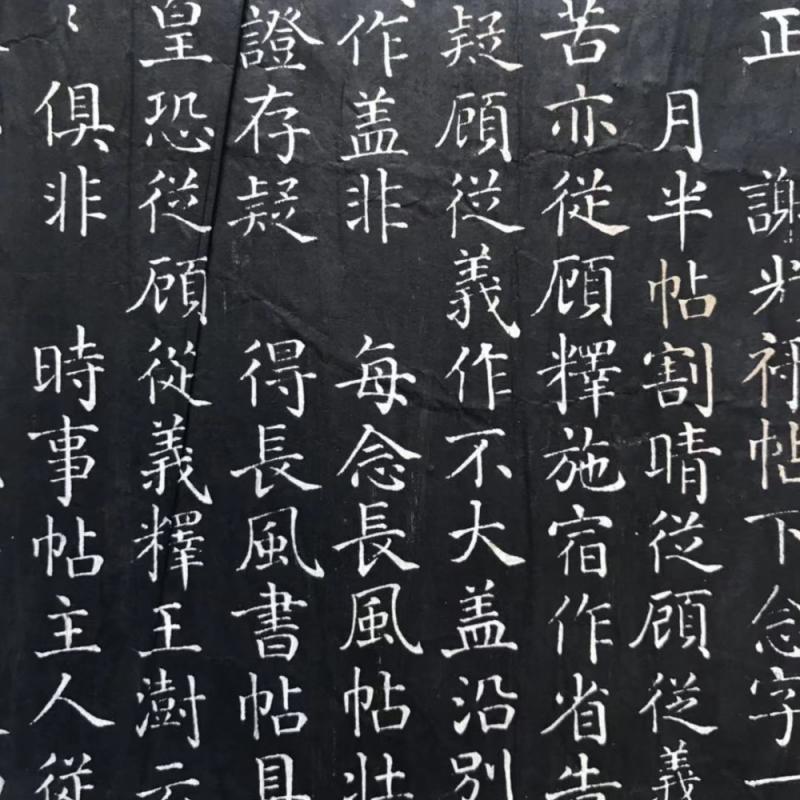 正 謝光祠帖下念字一
月半帖割晴從顧從義
苦亦從顧釋施宿作省告
疑顧從義作不大盖沿別
作盖非 每念長風帖壯
證存疑 得長風書帖具
皇恐從顧從義釋王澍云
俱非 時事帖主人從